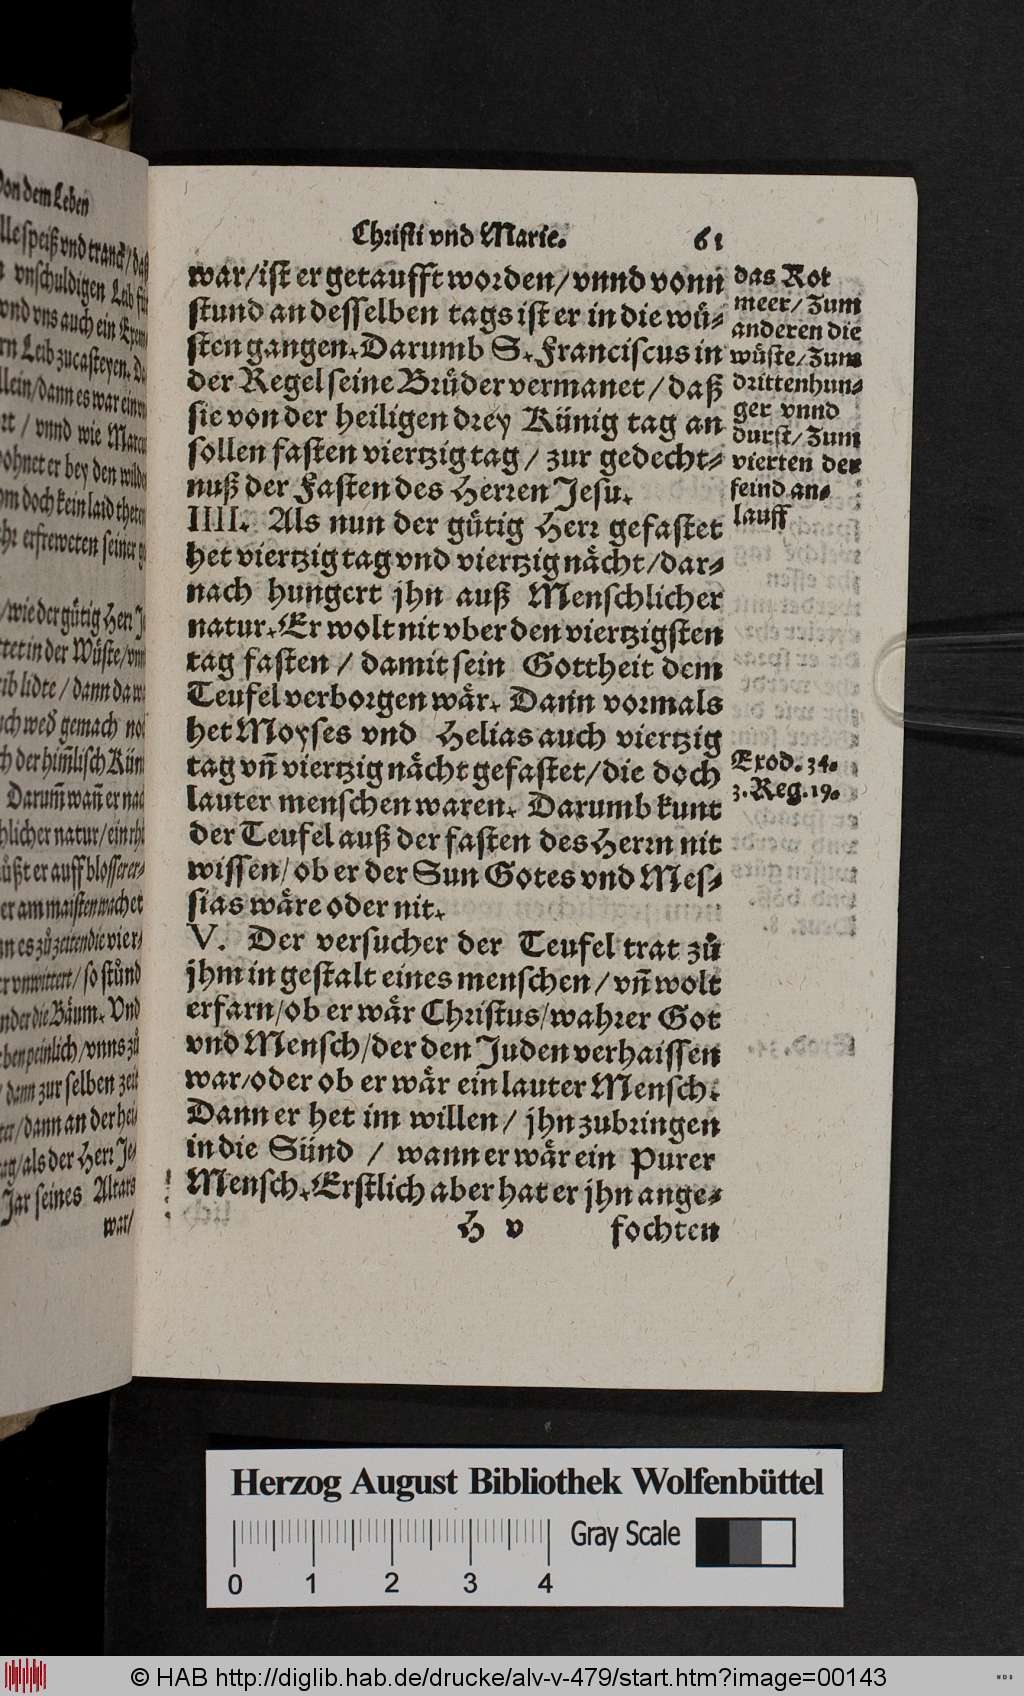 Von dem Leben
lle speiß vnd tranck / daß
vnschuldigen Lab für
vnd vns auch ein Exem
rn Leib zucasteyen. Da
llein / dann es war einen
rt / vnnd wie Marcus
ohnet er bey den wilden
om doch kein laid theten
cht erfreweten seiner ge
/ wie der gütig Herr Je
rtet in der Wüste / vnn
rib lidte / dann da wa
uch wed gemach no
ch der him̃lisch Küni
Darum̃ wañ er nac
chlicher natur / ein rhü
üßt er auff blosser er⸗
er am maisten wachet
nn es zů zeiten die vier⸗
er vnwittert / so stůnd
nder die Bäum. Vnd
ben peinlich / vnns zů
/ dann zur selben zeit
ter / dann an der hei
ag / als der Herr Je⸗
Jar seines Altars
war /
Christi vnd Marie. 61
war / ist er getaufft worden / vnnd vonn
stund an desselben tags ist er in die wů⸗
sten gangen. Darumb S. Franciscus in
der Regel seine Brůder vermanet / daß
sie von der heiligen drey Künig tag an
sollen fasten viertzig tag / zur gedecht⸗
nuß der Fasten des Herren Jesu.
IIII. Als nun der gůtig Herr gefastet
het viertzig tag vnd viertzig nåcht / dar⸗
nach hungert jhn auß Menschlicher
natur. Er wolt nit vber den viertzigsten
tag fasten / damit sein Gottheit dem
Teufel verborgen wår. Dann vormals
het Moyses vnd Helias auch viertzig
tag vñ viertzig nåcht gefastet / die doch
lauter menschen waren. Darumb kunt
der Teufel auß der fasten des Herrn nit
wissen / ob er der Sun Gotes vnd Mes⸗
sias wåre oder nit.
V. Der versucher der Teufel trat zů
jhm in gestalt eines menschen / vñ wolt
erfarn / ob er wår Christus / wahrer Got
vnd Mensch / der den Juden verhaissen
war / oder ob er wår ein lauter Mensch.
Dann er het im willen / jhn zubringen
in die Sünd / wann er wår ein Purer
Mensch. Erstlich aber hat er jhn ange⸗
H v fochten
das Rot
meer / Zum
anderen die
wüste / Zum
dritten hun⸗
ger vnnd
durst / Zum
vierten der
feind an⸗
lauff
Exod. 34.
3. Reg. 19.
Herzog August Bibliothek Wolfenbüttel
Gray Scale
0 1 2 3 4
© HAB http://diglib.hab.de/drucke/alv-v-479/start.htm?image=00143
HAB